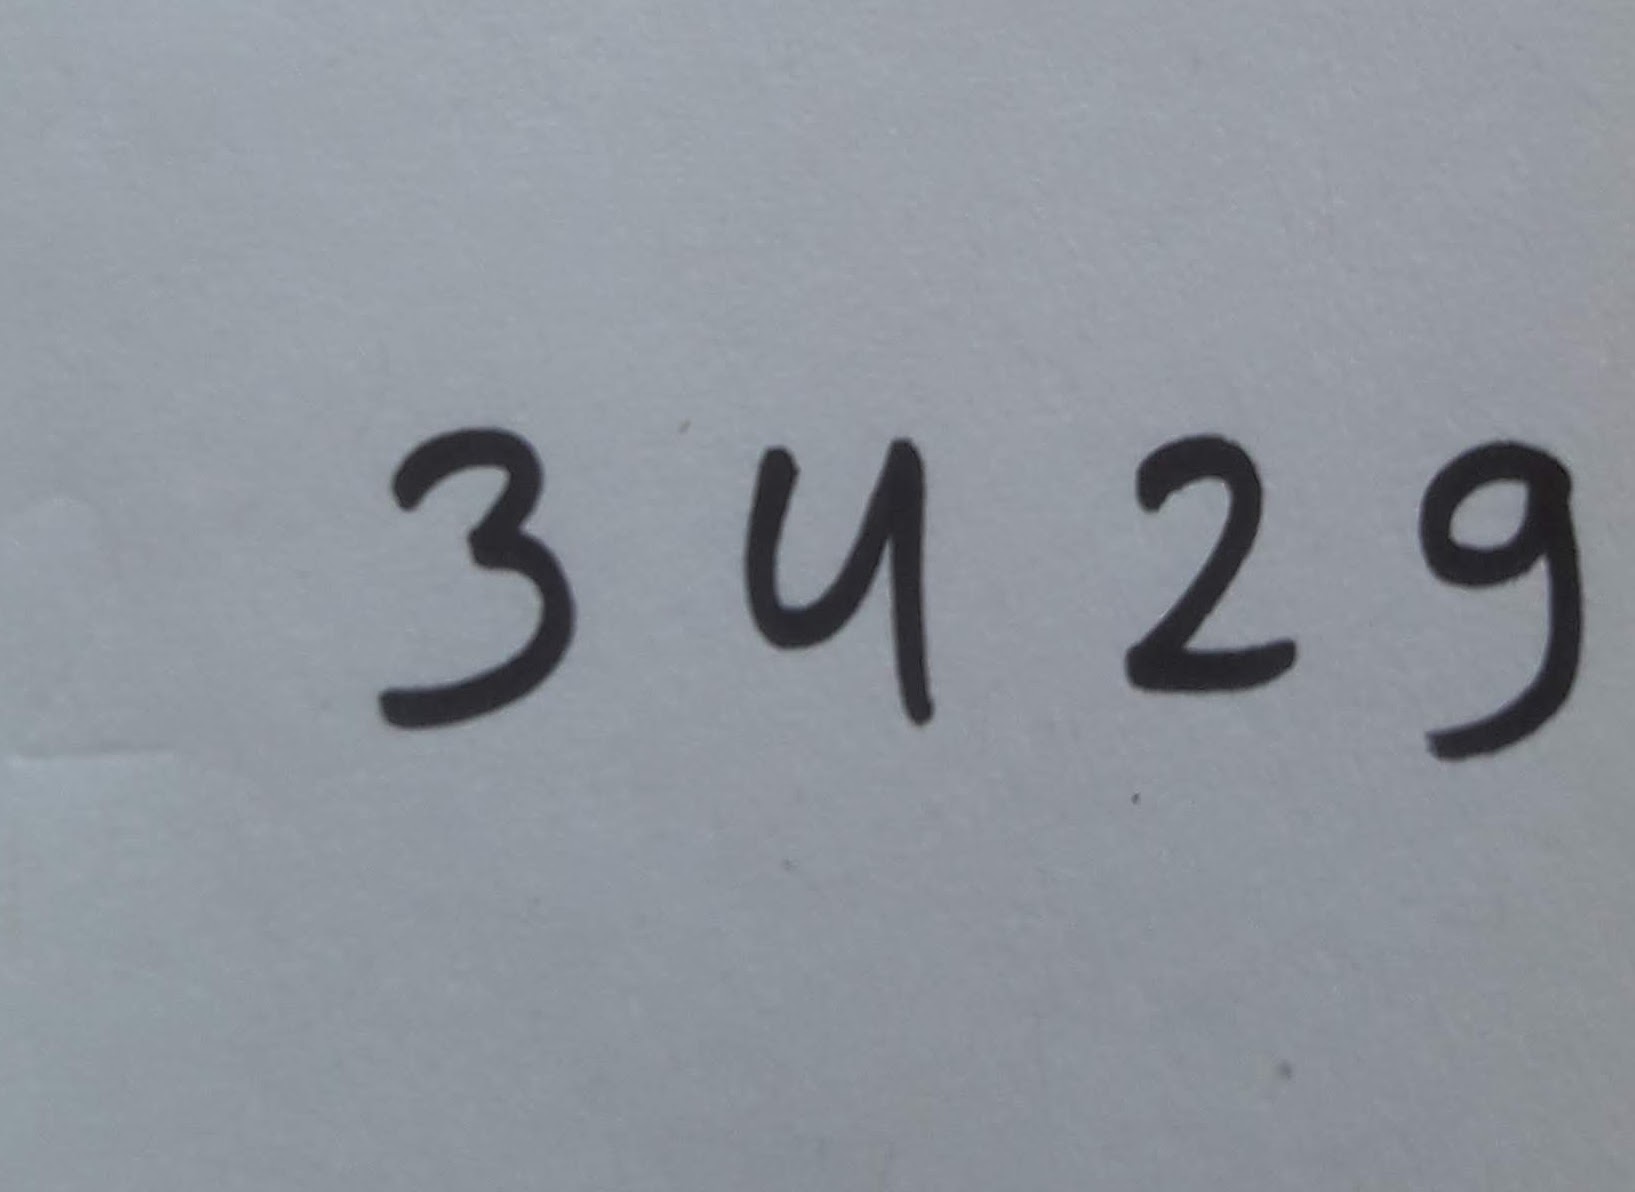 3 4 2 9